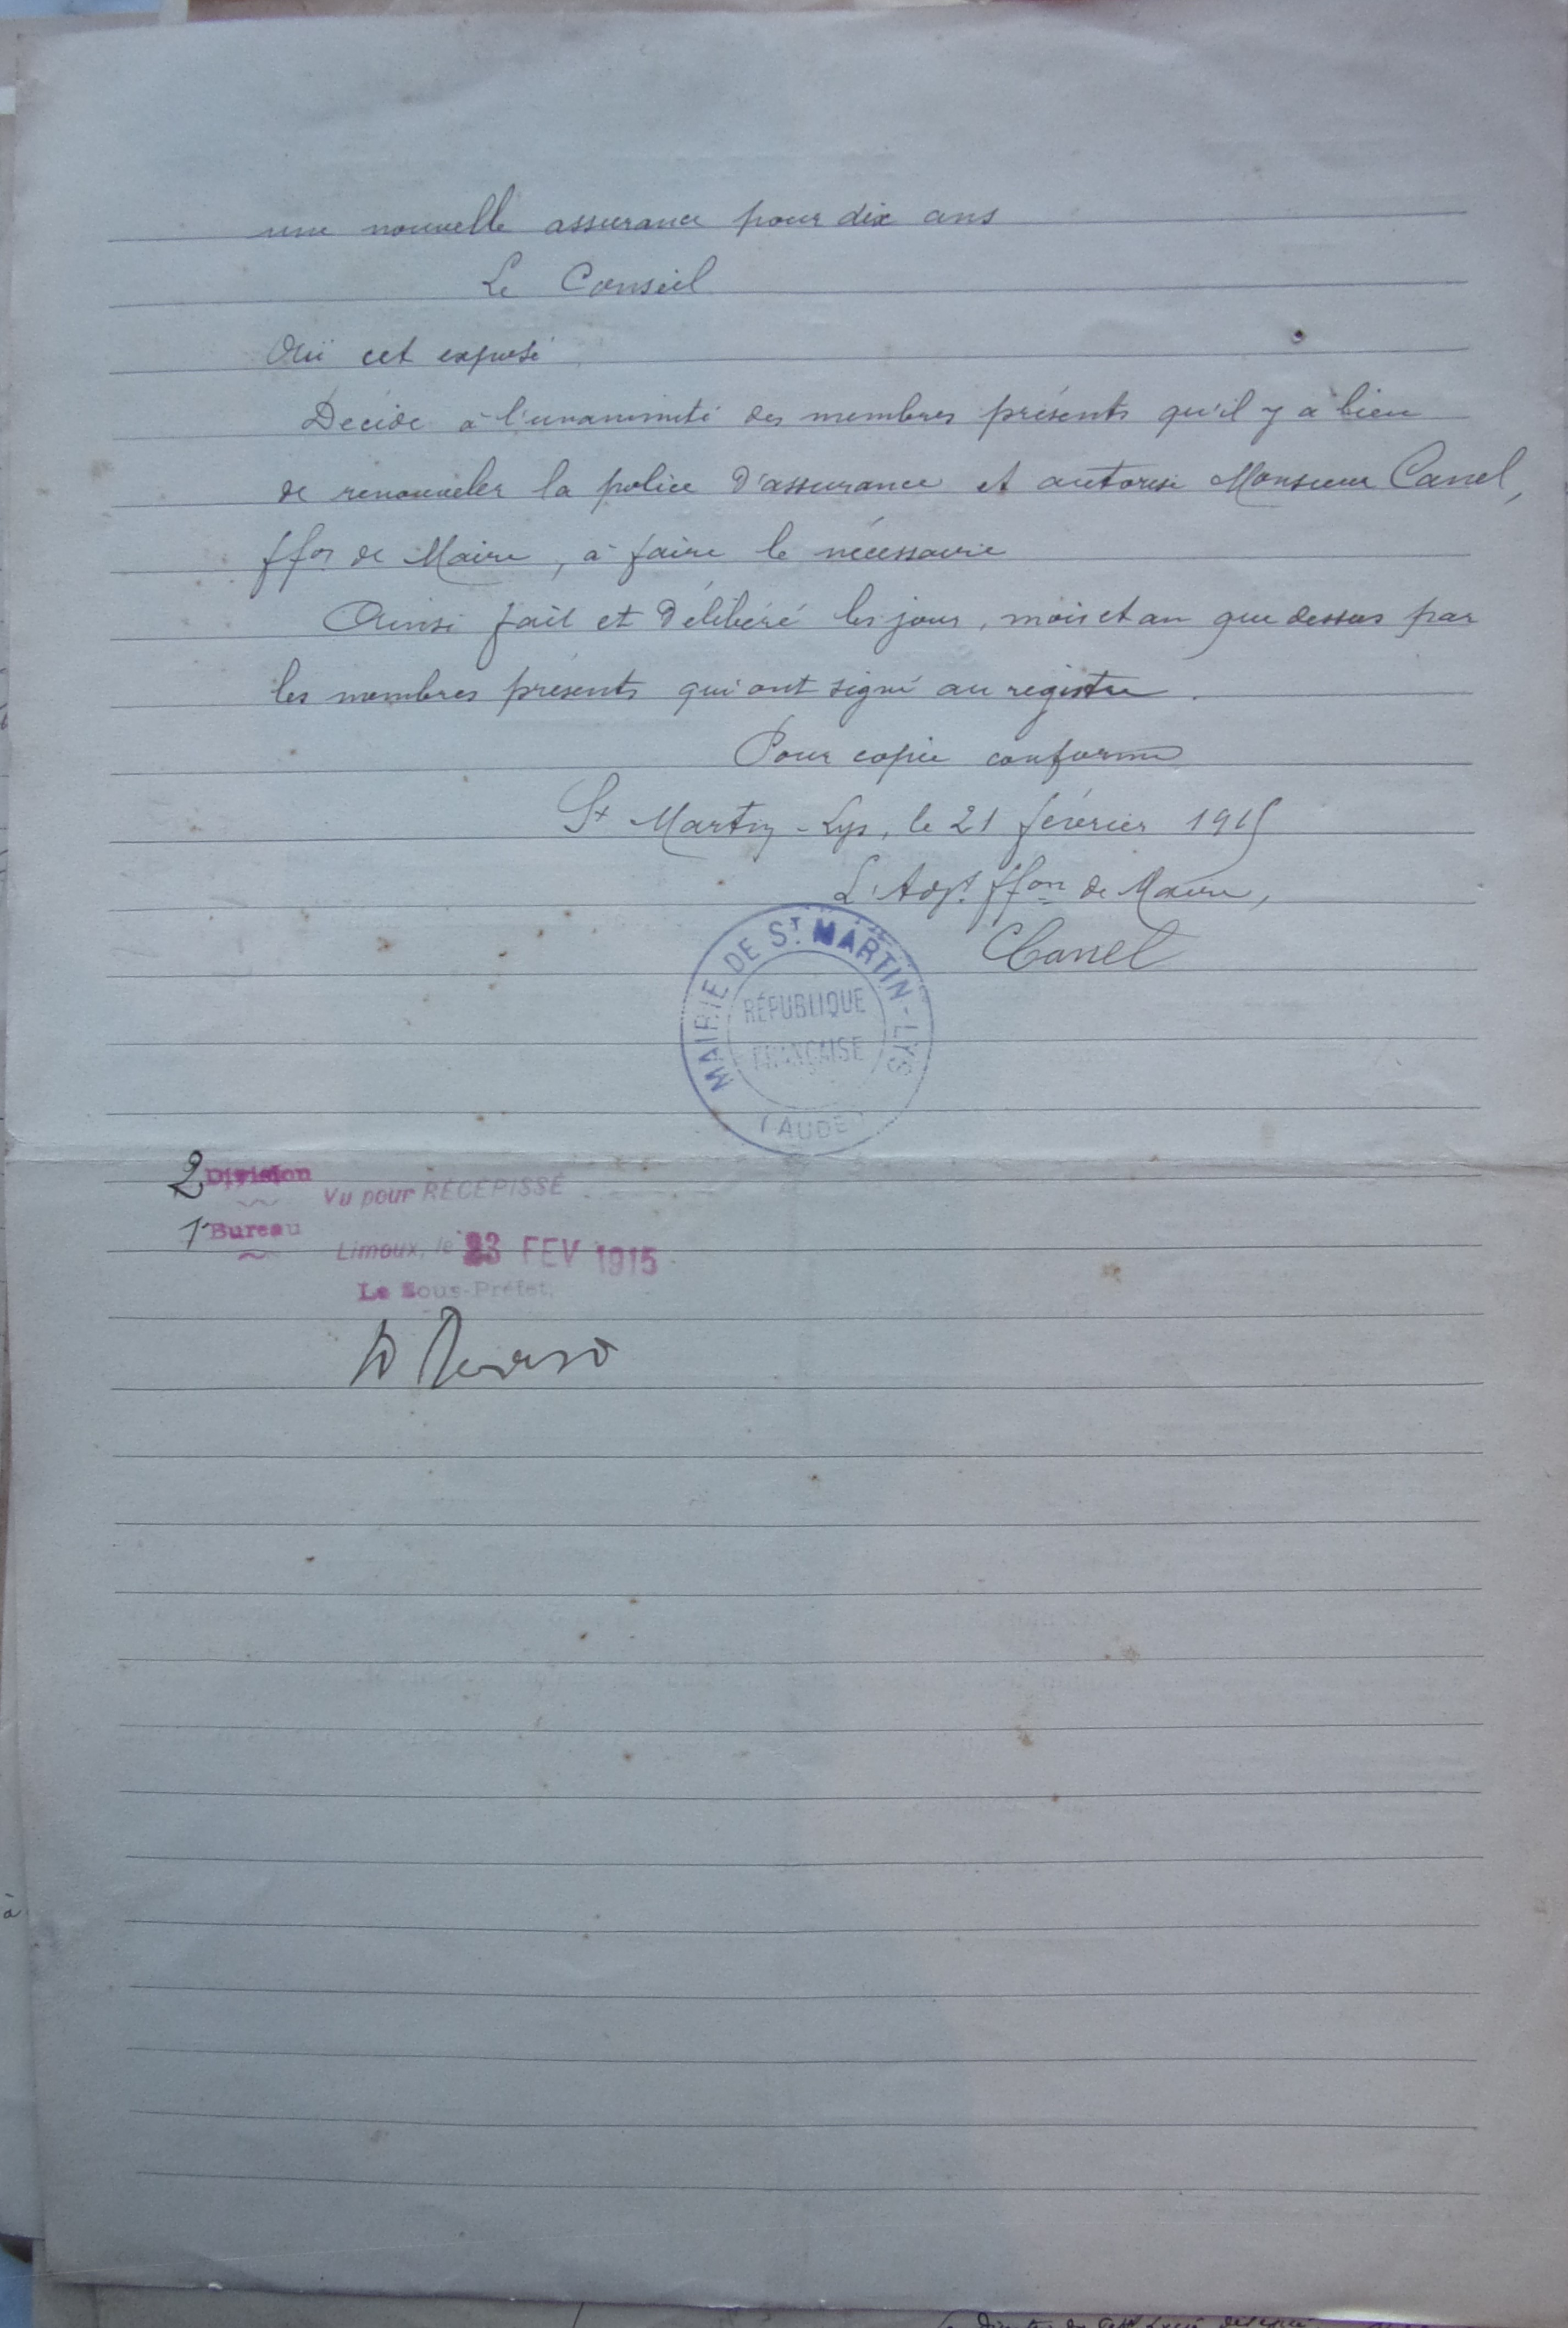 une nouvelle assurance pour dix ans
Le Conseil
Ouï cet exposé
Décide à l'unanimité des membres présents qu'il y a lieu
de renouveler la police d'assurance et autorise Monsieur Canel,
ffon de Maire, à faire le nécessaire
Ainsi fait et délibéré les jour, mois et an que dessus par
les membres présents qui ont signé au registre.
Pour copie conforme
St Martin-Lys, le 21 février 1915
L'Adjt ffon de Maire,
Canel
MAIRIE DE ST MARTIN-LYS
RÉPUBLIQUE
FRANÇAISE
(AUDE)
2 Division
Vu pour RÉCÉPISSÉ
1r Bureau
Limoux, le 23 FEV 1915
Le Sous-Préfet,
à